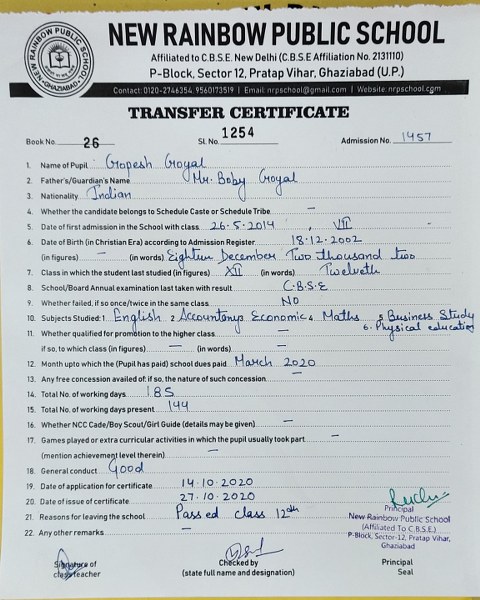 NEW RAINBOW PUBLIC SCHOOL
Affiliated to C.B.S.E. New Delhi (C.B.S.E Affiliation No. 2131110)
P-Block, Sector 12, Pratap Vihar, Ghaziabad (U.P.)
Contact: 0120-2746354, 9560173519 | Email: nrpschool@gmail.com | Website: nrpschool.com
NEW RAINBOW PUBLIC SCHOOL
GHAZIABAD
TRANSFER CERTIFICATE
Book No. 26 Sl. No. 1254 Admission No. 1457
1. Name of Pupil Gopesh Goyal
2. Father's/Guardian's Name Mr. Boby Goyal
3. Nationality Indian
4. Whether the candidate belongs to Schedule Caste or Schedule Tribe —
5. Date of first admission in the School with class 26.5.2014, VII
6. Date of Birth (in Christian Era) according to Admission Register 18.12.2002
(in figures) — (in words) Eighteen December Two thousand two
7. Class in which the student last studied (in figures) XII (in words) Twelveth
8. School/Board Annual examination last taken with result C.B.S.E
9. Whether failed, if so once/twice in the same class NO
10. Subjects Studied: 1 English 2 Accountany Economic 4 Maths 5 Business Study
6. Physical education
11. Whether qualified for promotion to the higher class —
if so, to which class (in figures) — (in words) —
12. Month upto which the (Pupil has paid) school dues paid March 2020
13. Any free concession availed of: if so, the nature of such concession —
14. Total No. of working days 185
15. Total No. of working days present 144
16. Whether NCC Cade/Boy Scout/Girl Guide (details may be given) —
17. Games played or extra curricular activities in which the pupil usually took part —
(mention achievement level therein) —
18. General conduct Good
19. Date of application for certificate 14.10.2020
20. Date of issue of certificate 27.10.2020
21. Reasons for leaving the school Passed class 12th
22. Any other remarks —
Principal
New Rainbow Public School
(Affiliated To C.B.S.E.)
P-Block, Sector-12, Pratap Vihar,
Ghaziabad
Signature of
class teacher
Checked by
(state full name and designation)
Principal
Seal